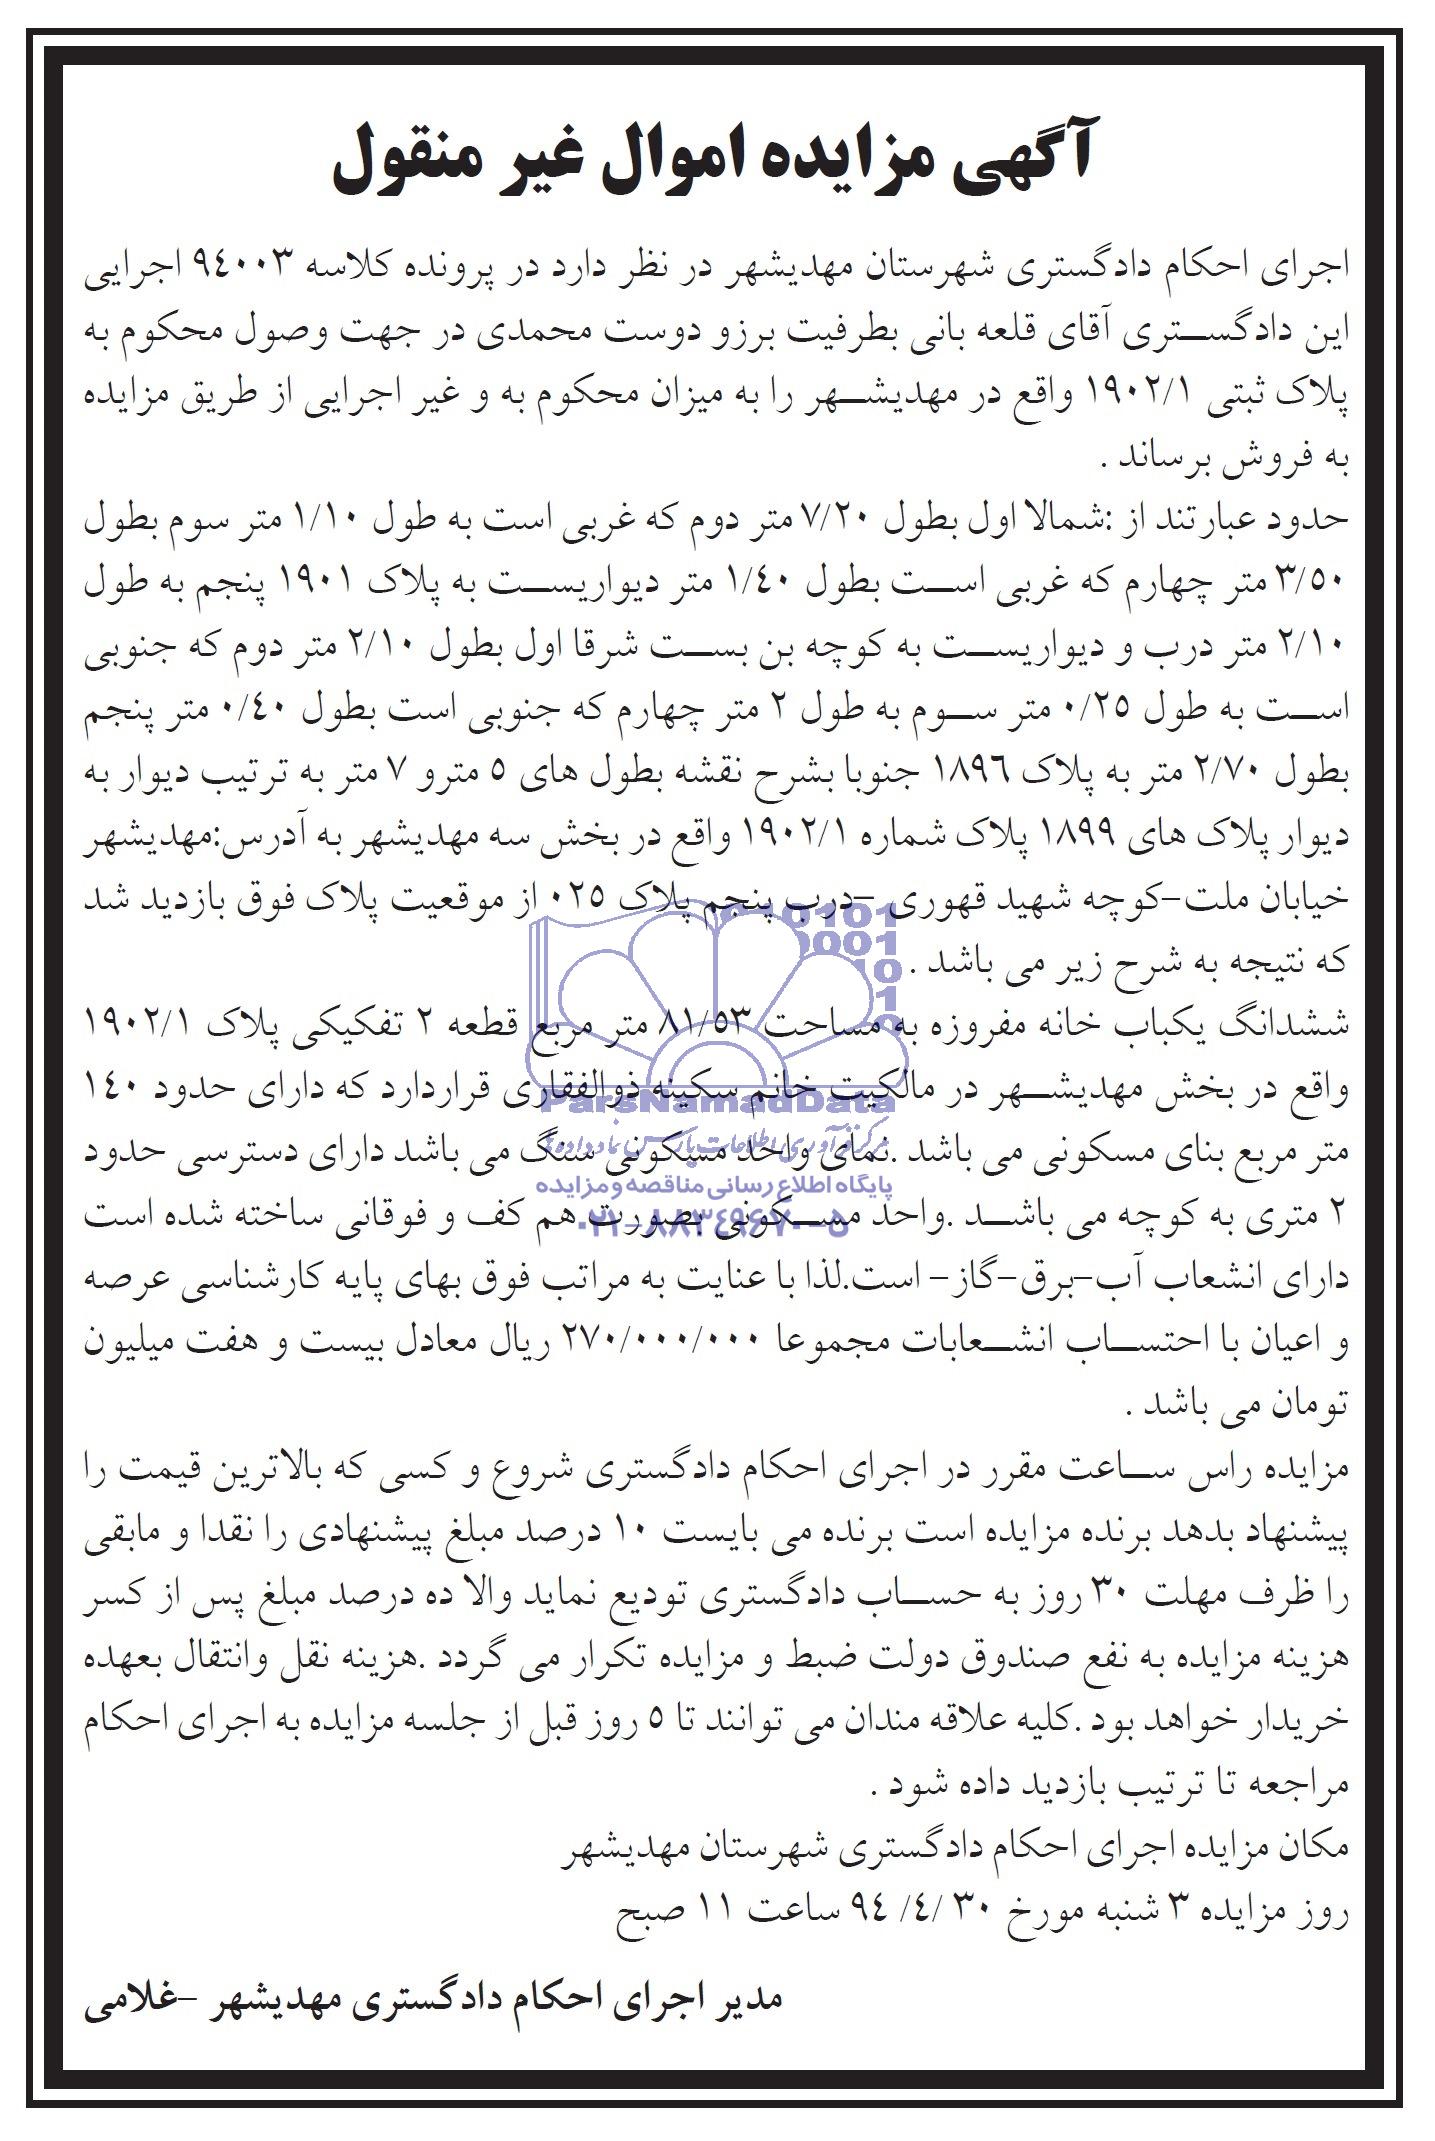 آگهی مزایده اموال غیر منقول
اجرای احکام دادگستری شهرستان مهدیشهر در نظر دارد در پرونده کلاسه ٩٤٠٠٣ اجرایی
این دادگستری آقای قلعه بانی بطرفیت برزو دوست محمدی در جهت وصول محکوم به
پلاک ثبتی ١٩٠٢/١ واقع در مهدیشهر را به میزان محکوم به و غیر اجرایی از طریق مزایده
به فروش برساند .
حدود عبارتند از :شمالا اول بطول ٧/٢٠ متر دوم که غربی است به طول ١/١٠ متر سوم بطول
٣/٥٠ متر چهارم که غربی است بطول ١/٤٠ متر دیواریست به پلاک ١٩٠١ پنجم به طول
٢/١٠ متر درب و دیواریست به کوچه بن بست شرقا اول بطول ٢/١٠ متر دوم که جنوبی
است به طول ٠/٢٥ متر سوم به طول ٢ متر چهارم که جنوبی است بطول ٠/٤٠ متر پنجم
بطول ٢/٧٠ متر به پلاک ١٨٩٦ جنوبا بشرح نقشه بطول های ٥ مترو ٧ متر به ترتیب دیوار به
دیوار پلاک های ١٨٩٩ پلاک شماره ١٩٠٢/١ واقع در بخش سه مهدیشهر به آدرس:مهدیشهر
خیابان ملت-کوچه شهید قهوری -درب پنجم پلاک ٠٢٥ از موقعیت پلاک فوق بازدید شد
که نتیجه به شرح زیر می باشد .
ششدانگ یکباب خانه مفروزه به مساحت ٨١/٥٣ متر مربع قطعه ٢ تفکیکی پلاک ١٩٠٢/١
واقع در بخش مهدیشهر در مالکیت خانم سکینه ذوالفقاری قراردارد که دارای حدود ١٤٠
متر مربع بنای مسکونی می باشد .نمای واحد مسکونی سنگ می باشد دارای دسترسی حدود
٢ متری به کوچه می باشد .واحد مسکونی بصورت هم کف و فوقانی ساخته شده است
دارای انشعاب آب-برق-گاز- است.لذا با عنایت به مراتب فوق بهای پایه کارشناسی عرصه
و اعیان با احتساب انشعابات مجموعا ٢٧٠/٠٠٠/٠٠٠ ریال معادل بیست و هفت میلیون
تومان می باشد .
مزایده راس ساعت مقرر در اجرای احکام دادگستری شروع و کسی که بالاترین قیمت را
پیشنهاد بدهد برنده مزایده است برنده می بایست ١٠ درصد مبلغ پیشنهادی را نقدا و مابقی
را ظرف مهلت ٣٠ روز به حساب دادگستری تودیع نماید والا ده درصد مبلغ پس از کسر
هزینه مزایده به نفع صندوق دولت ضبط و مزایده تکرار می گردد .هزینه نقل وانتقال بعهده
خریدار خواهد بود .کلیه علاقه مندان می توانند تا ٥ روز قبل از جلسه مزایده به اجرای احکام
مراجعه تا ترتیب بازدید داده شود .
مکان مزایده اجرای احکام دادگستری شهرستان مهدیشهر
روز مزایده ٣ شنبه مورخ ٣٠ /٤/ ٩٤ ساعت ١١ صبح
مدیر اجرای احکام دادگستری مهدیشهر -غلامی
ParsNamadData
مرکز فرآوری اطلاعات پارس نماد داده ها
پایگاه اطلاع رسانی مناقصه و مزایده
٠٢١-٨٨٣٤٩٦٧٠-٥